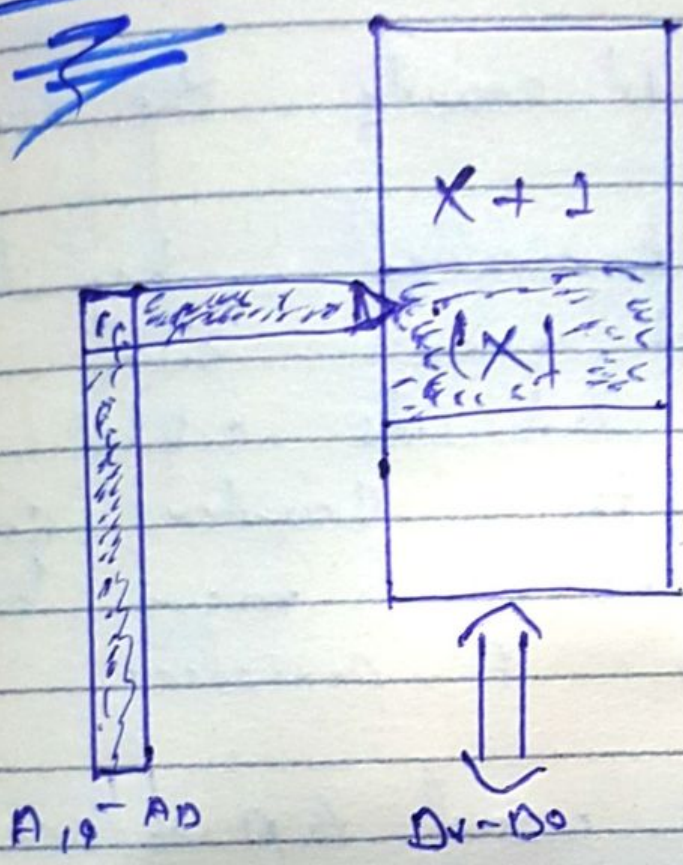 X + 1
(X)
A19 - A0
Dv - D0